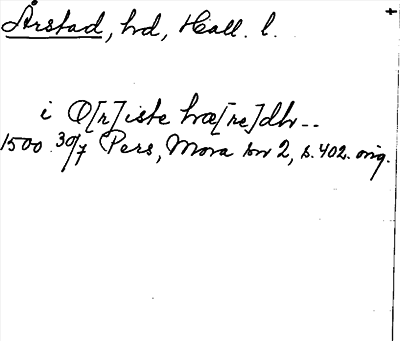 Årstad, hd, Hall. l.
i O[r]iste hæ[re]dh..
1500 30/7 Pers, Mora bv 2, s. 402. orig.